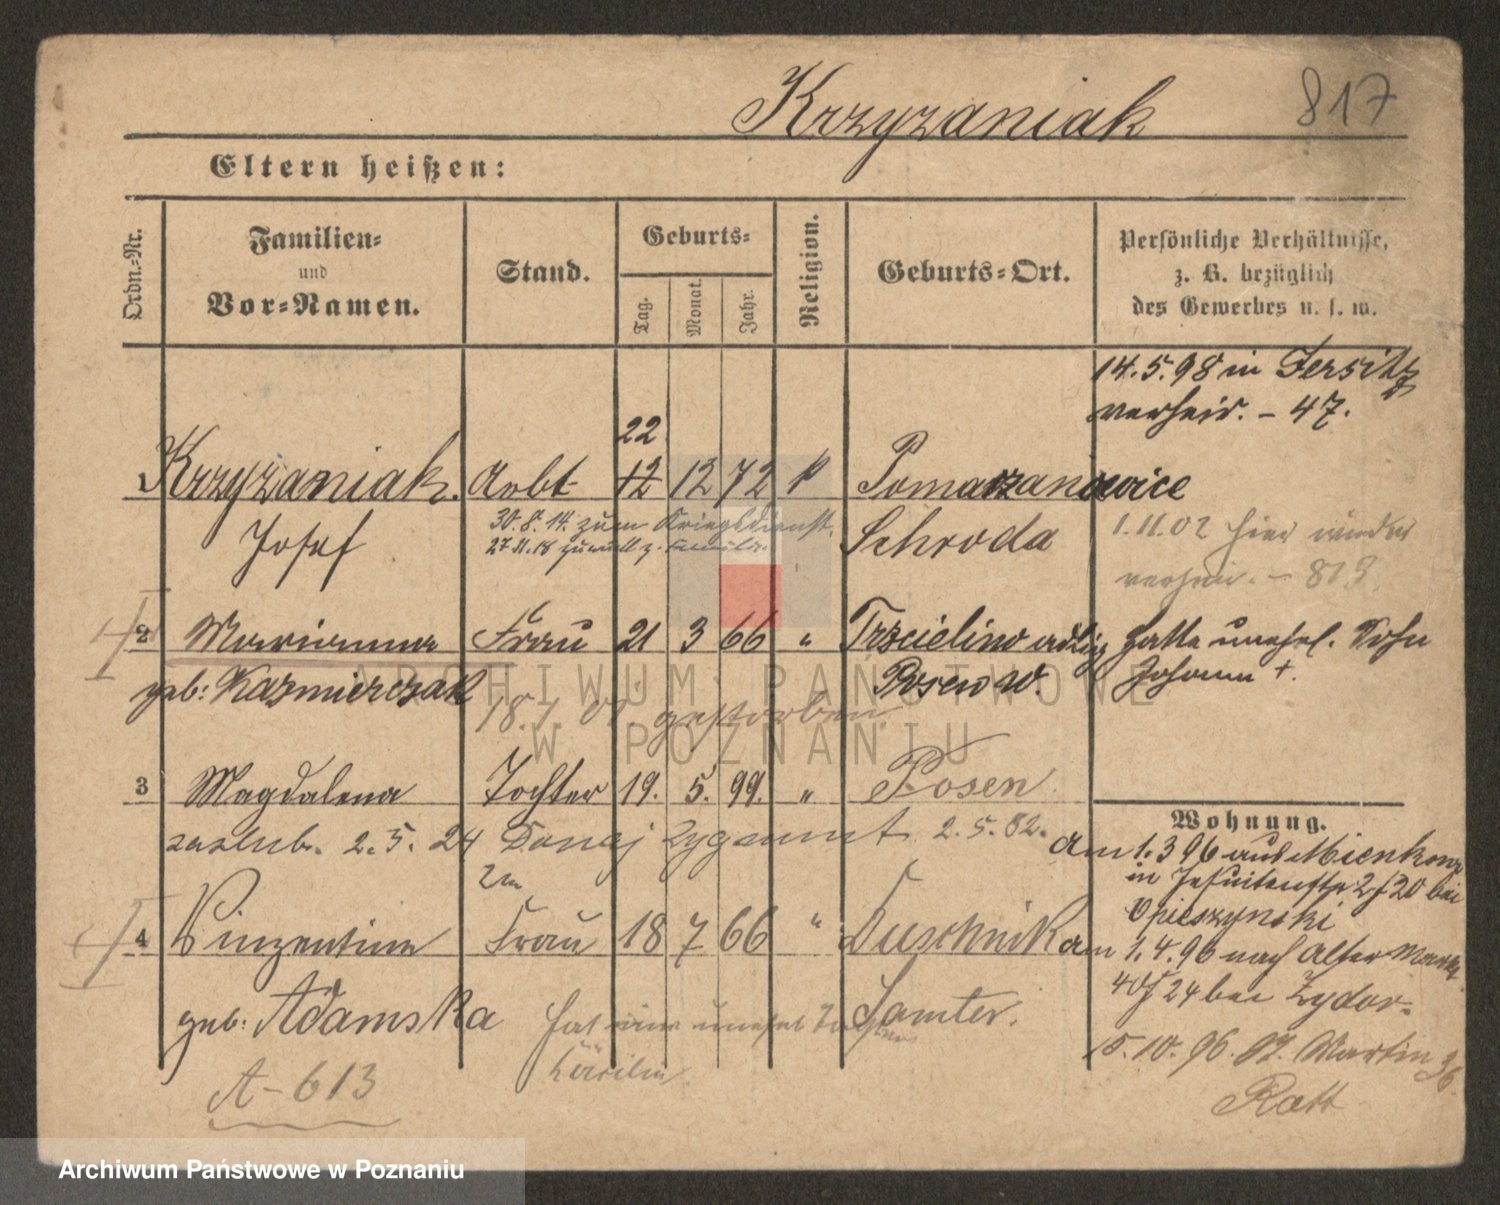 Krzyzaniak 817
Eltern heißen:
Ordn.-Nr.
Familien-
und
Vor-Namen.
Stand.
Geburts-
Tag.
Monat.
Jahr.
Religion.
Geburts-Ort.
Persönliche Verhältnisse,
z. B. bezüglich
des Gewerbes u. s. w.
14.5.98 in Jersitz
verheir. - 47.
22
1 Krzyzaniak. Arbt 12 12 72 k Pomarzanowice
Josef
30.8.14. zum Kriegsdienst.
27.11.18 zurück z. Familie.
Schroda
1.11.02 hier wieder
verheir. - 813.
2 Marianna Frau 21 3 66 " Trzcielino adlig
hatte unehel. Sohn
Johann +.
geb: Kazmierczak
Posen W.
18.1.01. gestorben
3 Magdalena Tochter 19. 5. 99. " Posen.
zaslub. 2.5.24 Donaj Zygmunt 2.5.02.
2te
4 Vinzentine Frau 18 7 66 " Duschnik
geb: Adamska
Samter.
hat eine unehel Tochter
Cäcilie
A-613
Wohnung.
Am 1.3 96 aus
in Jesuitenstr 2/20 bei
Opieszynski
am 1.4.96 nach Alter Markt
40/24 bei Zydor-
15.10.96. St. Martin 36
Ratt
ARCHIWUM PAŃSTWOWE
W POZNANIU
Archiwum Państwowe w Poznaniu